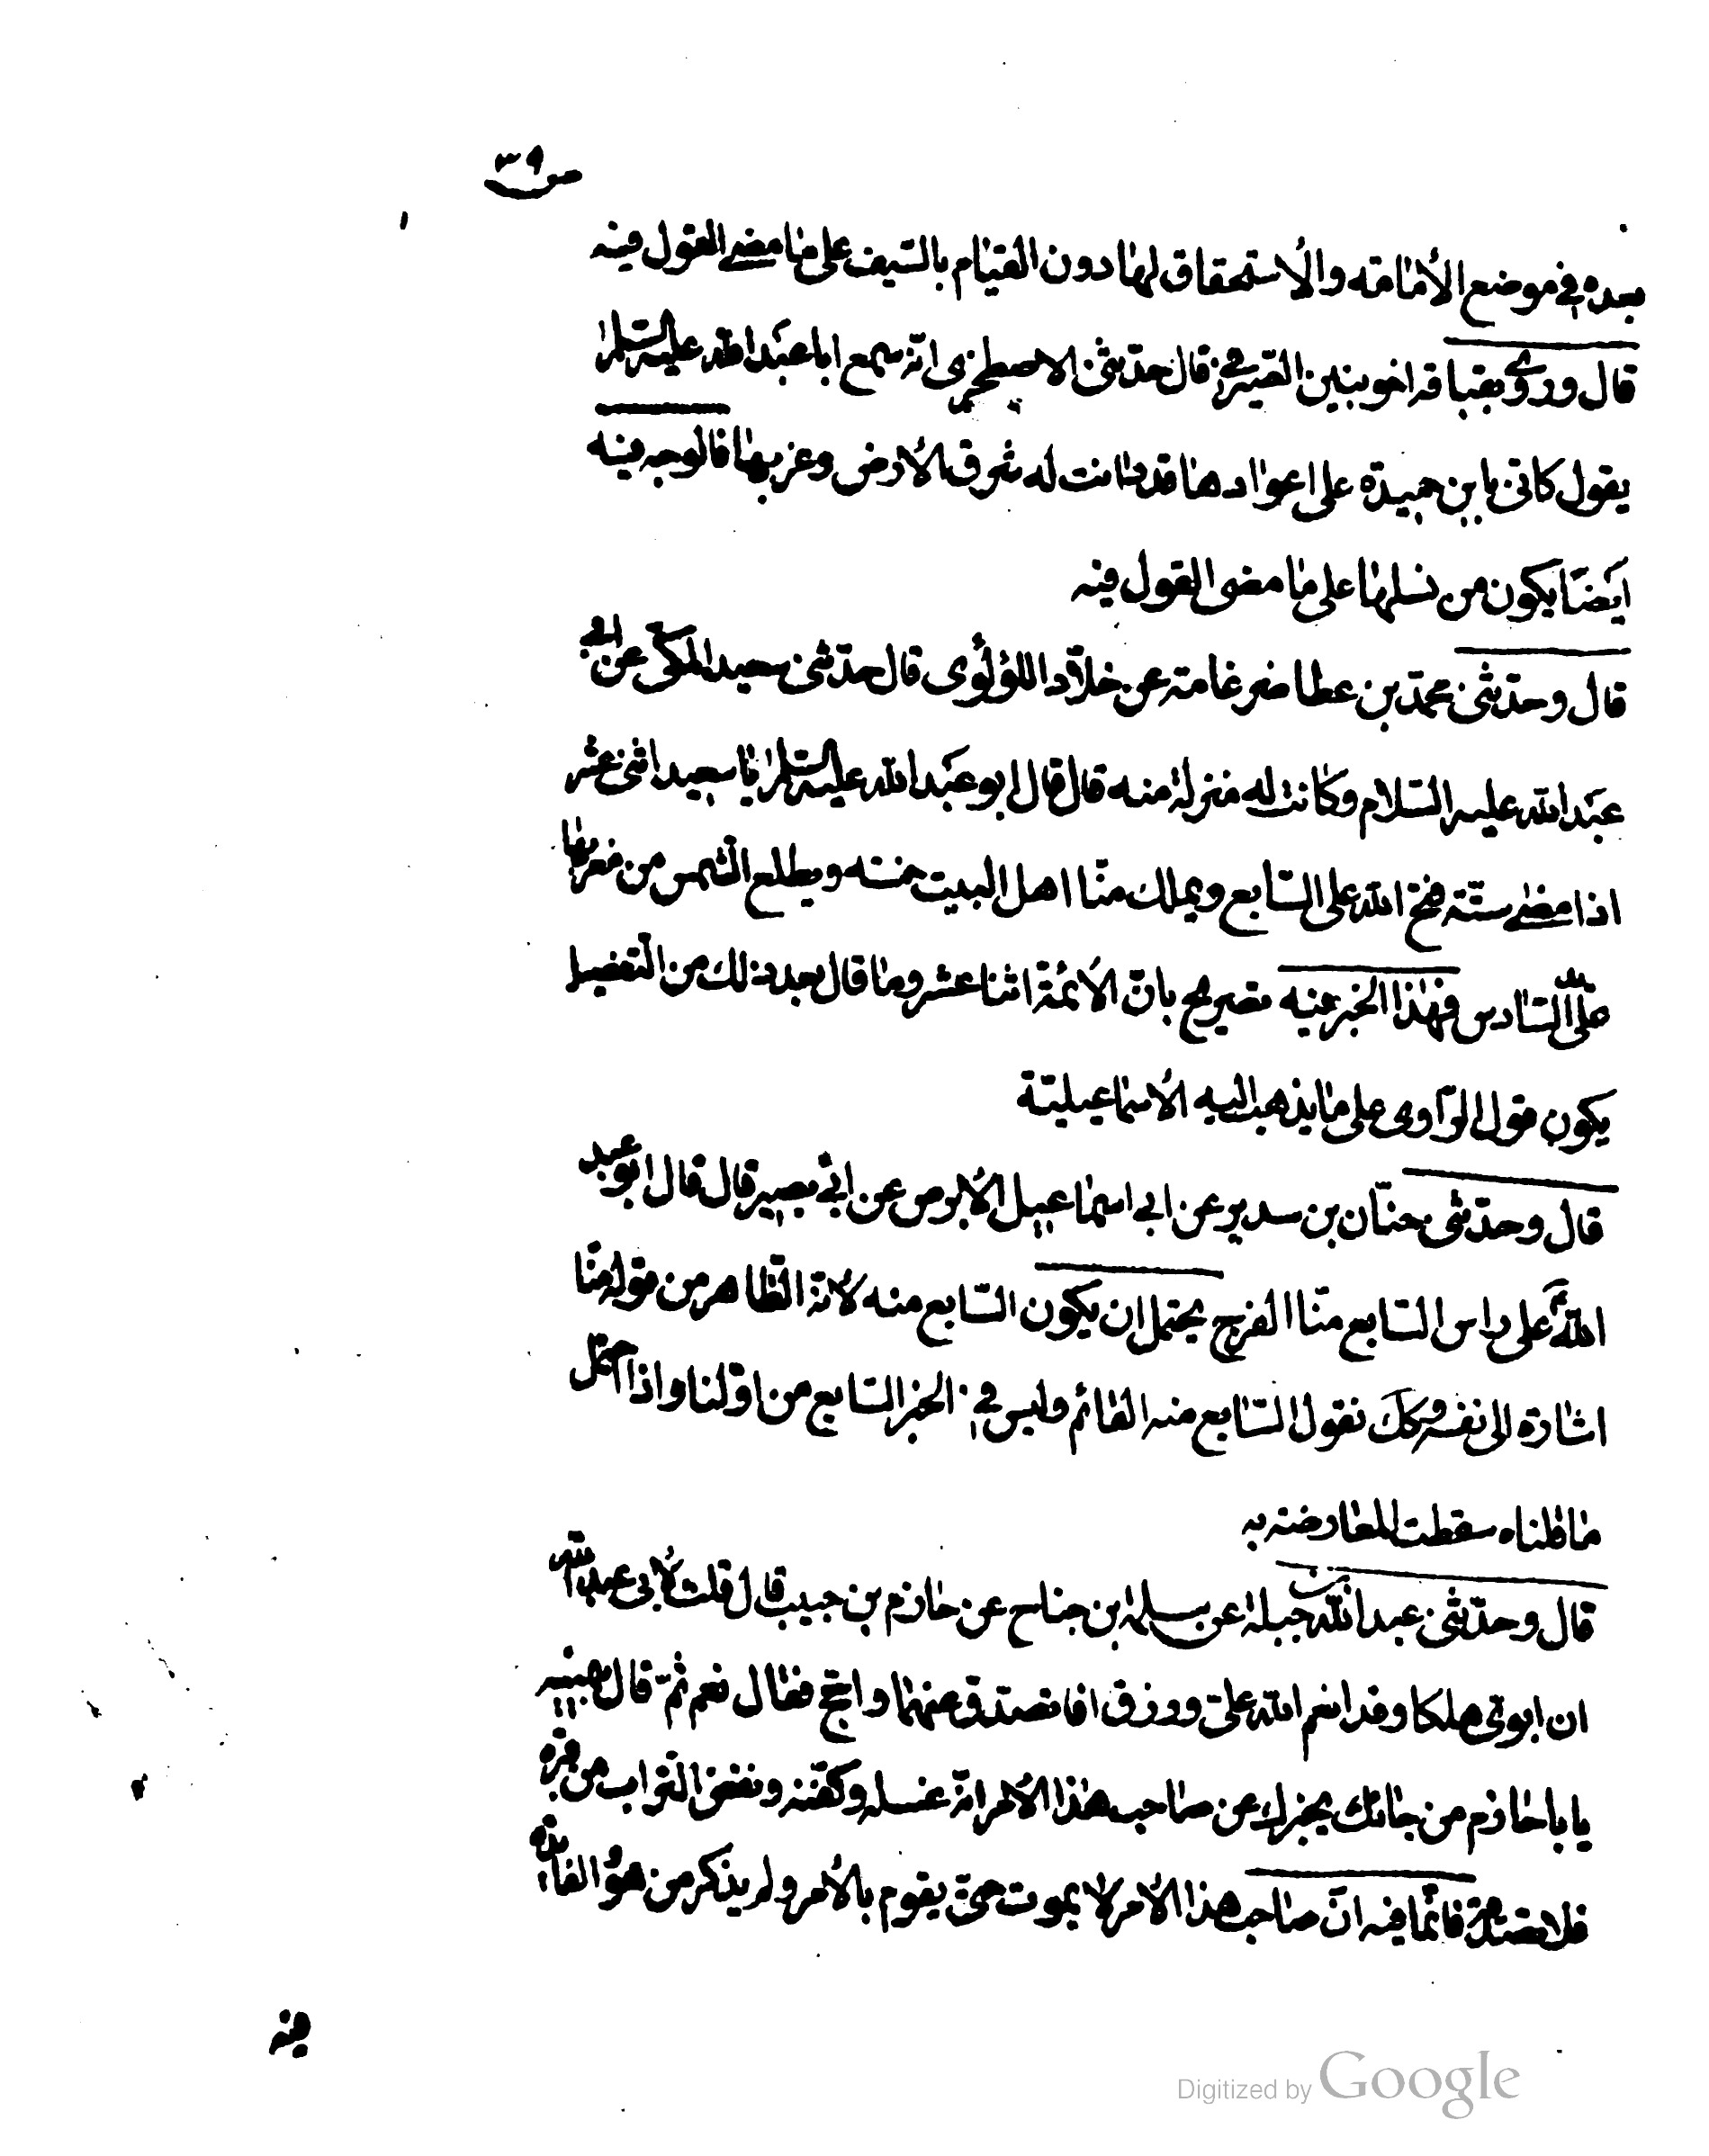 ص ٣٩
بعده في موضع الأمامة والأستحقاق لها دون القيام بالسّيف على ما مضى القول فيه
قال وروى بقباقه اخو بنين الصّيرفي قال حدّثنى الاصطخرى انّه سمع ابا عبد الله عليه السّلم
يقول كانى بابن حميدة على اعوادها قد دانت له شرق الأرض وغربها فالوجه فيه
ايضا يكون من نسلها على ما مضى القول فيه
قال وحدّثنى محمّد بن عطا ضرغامة عن خلاّد اللؤلؤى قال حدّثنى سعيد المكّى عن ابى
عبد الله عليه السّلام وكانت له منزلة منه قال قال ابو عبد الله عليه السّلم يا سعيد اثنى عشر
اذا مضى ستّة فتح الله على السّابع ويملك منّا اهل البيت خمسة ويطلع الشّمس من مغربها
على السّادس فهذا الخبر فيه تصريح بانّ الأئمّة اثنا عشر وما قال بعد ذلك من التفضيل
يكون قول الرّاوى على ما يذهب اليه الأسماعيليّة
قال وحدّثنى حنّان بن سدير عن ابى اسماعيل الأبرص عن ابى بصير قال قال ابو عبد
الله ع على راس السّابع منّا الفرج يحتمل ان يكون السّابع منه لانّه الظّاهر من قوله منّا
اشارة الى نفسه وكك نقول السّابع منه القائم وليس في الخبر السّابع من اوّلنا واذا احتمل
ما قلناه سقطت المعارضة به
قال وحدّثنى عبد الله بن جبلة عن سلمة ابن جناح عن حازم بن حبيب قال قلت لأبى عبد الله
ان ابوىّ هلكا وقد انعم الله علىّ ورزق افاتصدّق عنهما واحجّ فقال نعم ثمّ قال بيمينه
يا با حازم من جائك يخبرك عن صاحب هذا الأمر انّه غسله وكفّنه ونفض التراب من قبره
فلا تصدّقه فانّما فيه انّ صاحب هذا الأمر لا يموت حتّى يقوم بالأمر ولم يذكر من هو الفائدة
فيه
Digitized by Google